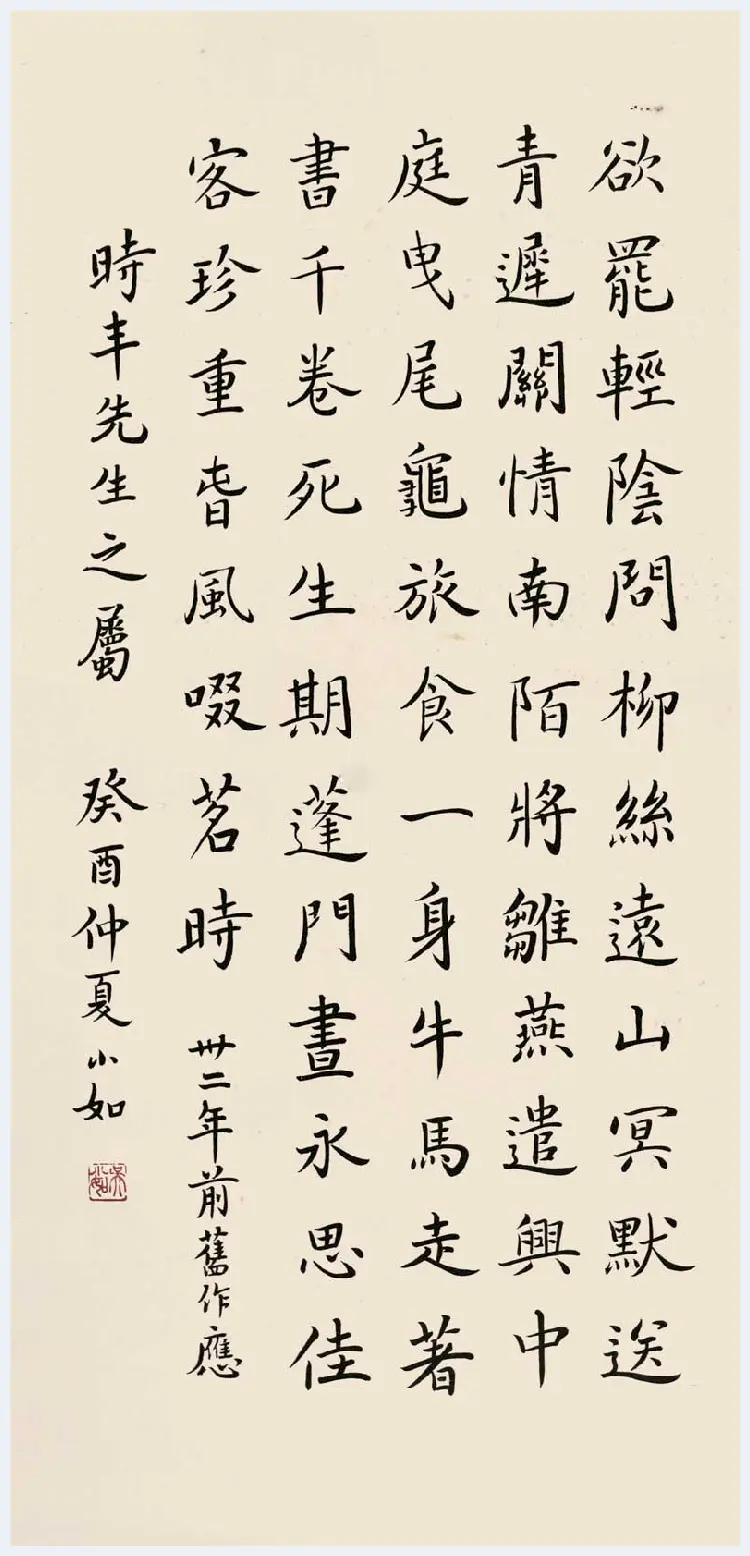 欲罷輕陰問柳絲遠山冥默送
青遲關情南陌將雛燕遣興中
庭曳尾龜旅食一身牛馬走著
書千卷死生期蓬門晝永思佳
客珍重旹風啜茗時 卅二年前舊作應
時丰先生之屬 癸酉仲夏小如
吳小如